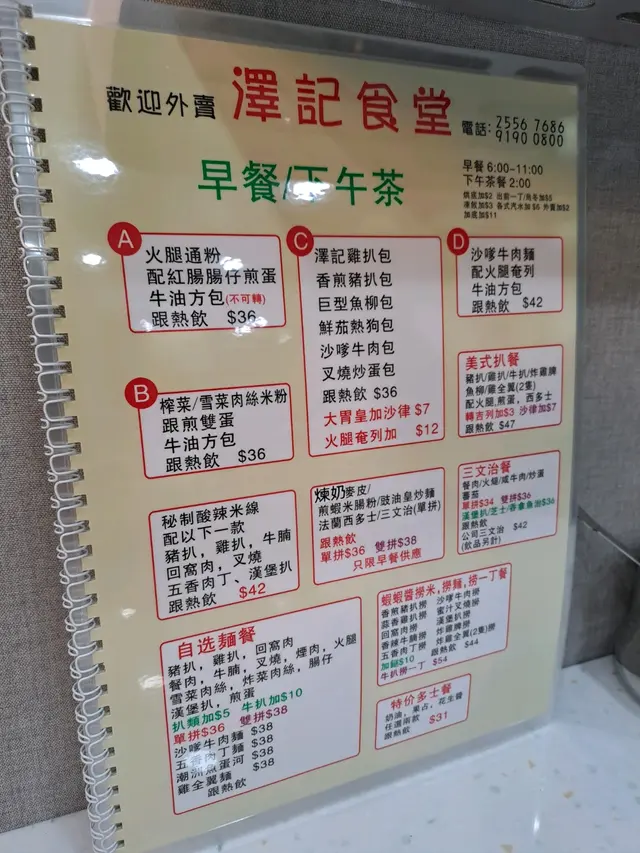 歡迎外賣 澤記食堂
電話: 2556 7686
9190 0800
早餐/下午茶
早餐 6:00-11:00
下午茶餐 2:00
烘底加$2 出前一丁/烏冬加$5
凍飲加$3 各式汽水加$6 外賣加$2
加底加$11
A
火腿通粉
配紅腸腸仔煎蛋
牛油方包(不可轉)
跟熱飲 $36
B
榨菜/雪菜肉絲米粉
跟煎雙蛋
牛油方包
跟熱飲 $36
秘制酸辣米線
配以下一款
豬扒, 雞扒, 牛腩
回窩肉, 叉燒
五香肉丁、漢堡扒
跟熱飲 $42
C
澤記雞扒包
香煎豬扒包
巨型魚柳包
鮮茄熱狗包
沙嗲牛肉包
叉燒炒蛋包
跟熱飲 $36
大胃皇加沙律 $7
火腿奄列加 $12
煉奶麥皮/
煎蝦米腸粉/豉油皇炒麵
法蘭西多士/三文治(單拼)
跟熱飲
單拼$36 雙拼$38
只限早餐供應
D
沙嗲牛肉麵
配火腿奄列
牛油方包
跟熱飲 $42
美式扒餐
豬扒/雞扒/牛扒/炸雞脾
魚柳/雞全翼(2隻)
配火腿,煎蛋, 西多士
轉吉列加$3 沙律加$7
跟熱飲 $47
三文治餐
餐肉/火腿/咸牛肉/炒蛋
蕃茄
單拼$34 雙拼$36
漢堡扒/芝士/香拿魚治$36
跟熱飲
公司三文治 $42
(飲品另計)
自选麵餐
豬扒, 雞扒, 回窩肉
餐肉, 牛腩, 叉燒, 煙肉, 火腿
雪菜肉絲, 炸菜肉絲, 腸仔
漢堡扒, 煎蛋
扒類加$5 牛扒加$10
單拼$36 雙拼$38
沙嗲牛肉麵 $38
五香肉丁麵 $38
潮洲魚蛋河 $38
雞全翼麵 $38
跟熱飲
蝦蝦醬撈米,撈麵,撈一丁餐
香煎豬扒撈 沙嗲牛肉撈
蒜香雞扒撈 蜜汁叉燒撈
回窩肉撈 漢堡扒撈
香辣牛腩撈 炸雞脾撈
五香肉丁撈 炸雞全翼(2隻)撈
加餸$10 跟熱飲 $44
牛扒撈一丁 $54
特价多士餐
奶油, 果占, 花生醬
任選兩款 $31
跟熱飲